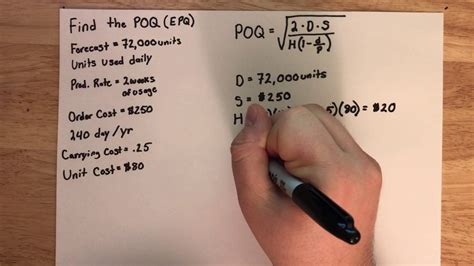 Find the POQ (EPQ)
Forecast = 72,000 units
Units used daily
Prod. Rate = 2 weeks
of usage
Order Cost = $250
240 day / yr
Carrying Cost = .25
Unit Cost = $80
POQ = √ 2·D·S
H(1-d/p)
D = 72,000 units
S = $250
H 5)(80) = $20